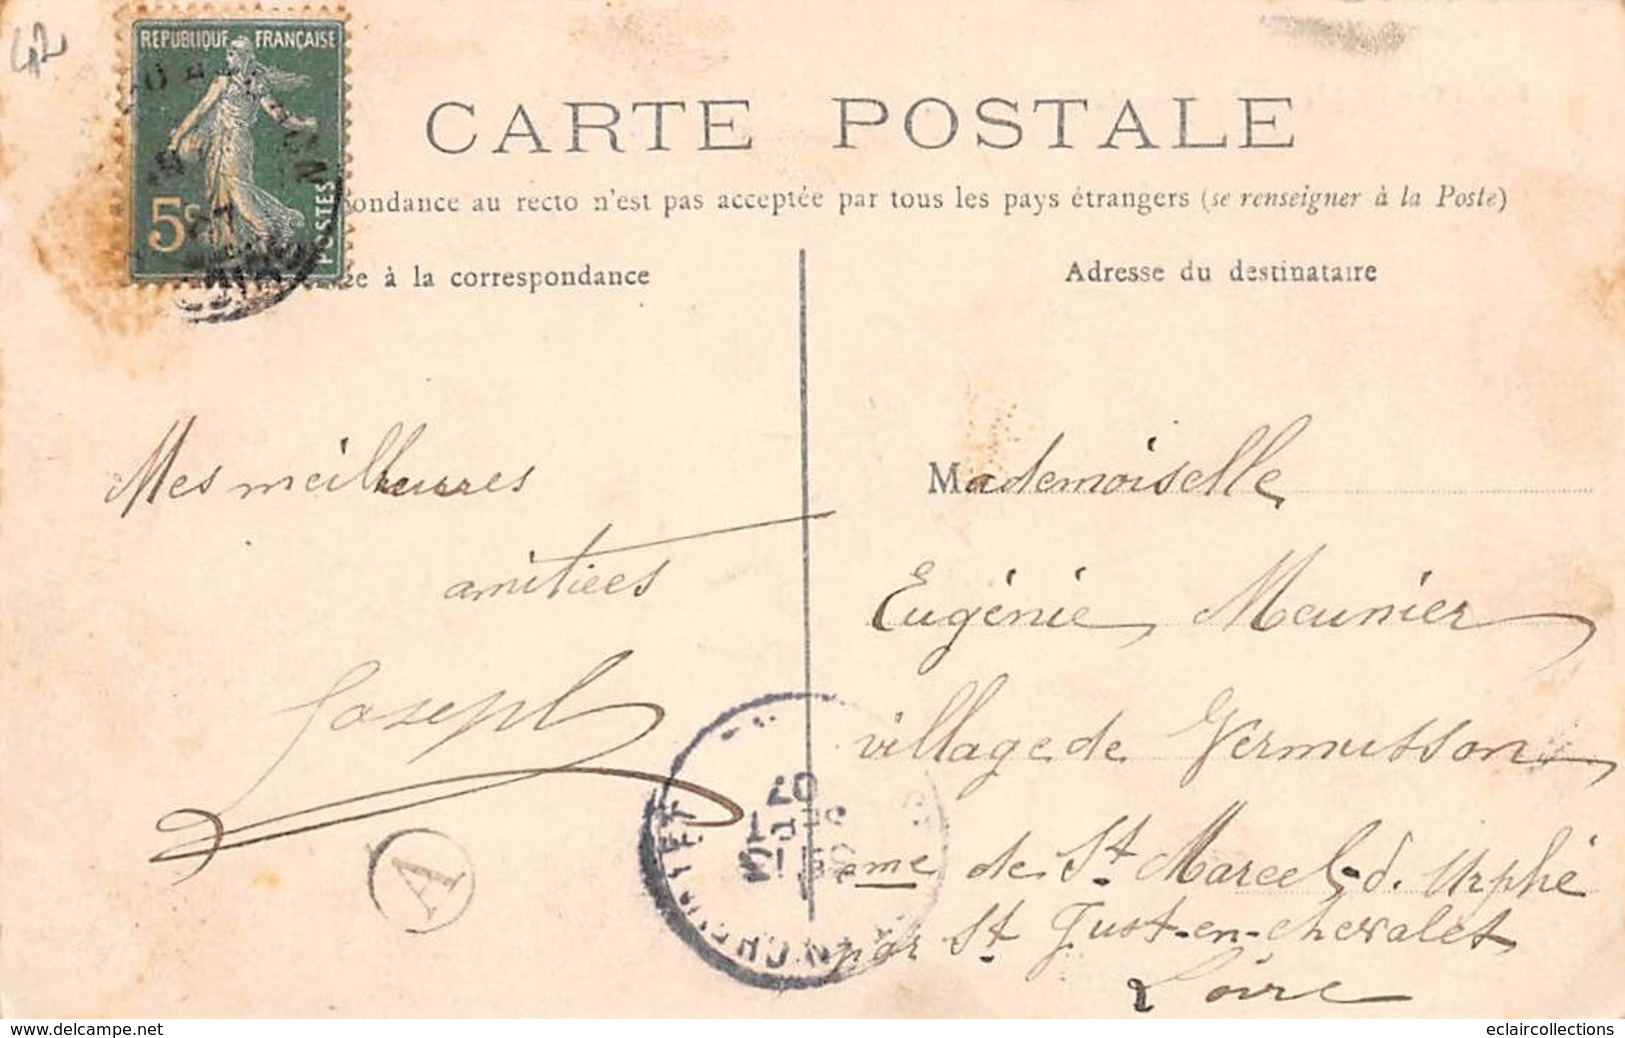 42
REPUBLIQUE FRANÇAISE
5c
POSTES
CARTE POSTALE
ondance au recto n'est pas acceptée par tous les pays étrangers (se renseigner à la Poste)
à la correspondance
Adresse du destinataire
Mes meilleures
amitiées
Joseph
Mademoiselle
Eugénie Meunier
village de Vermusson
de St Marcel d. Urphé
par St Just-en-chevalet
Loire
07
A
www.delcampe.net
eclaircollections